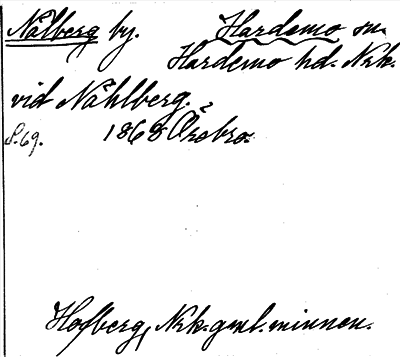 Nålberg by. Hardemo sn.
Hardemo hd. Nrk.
vid Nåhlberg.
S. 69. 1868 Örebro.
Hofberg, Nrk. gml. minnen.